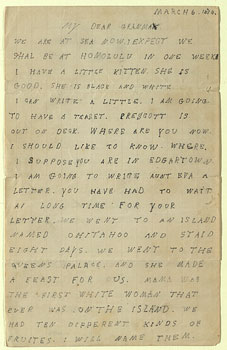 MARCH 6.
MY DEAR GRANMA
WE ARE AT SEA NOW, EXPEST WE
SHAL BE AT HONOLULU IN ONE WEEK.
I HAVE A LITTLE KITTEN. SHE IS
GOOD. SHE IS BLACK AND WHITE.
I CAN WRITE A LITTLE. I AM GOING
TO HAVE A TEASET. PRESCOTT IS
OUT ON DECK. WHERE ARE YOU NOW.
I SHOULD LIKE TO KNOW. WHERE.
I SUPPOSE YOU ARE IN EDGARTOWN.
I AM GOING TO WRITE AUNT EFA A
LETTER. YOU HAVE HAD TO WAIT
A LONG TIME FOR YOUR
LETTER. WE WENT TO AN ISLAND
NAMED OHITAHOO AND STAID
EIGHT DAYS. WE WENT TO THE
QUEENS PALACE, AND SHE MADE
A FEAST FOR US. MAMA WAS
THE FIRST WHITE WOMAN THAT
EVER WAS ON THE ISLAND. WE
HAD TEN DIFFERENT KINDS OF
FRUITES. I WILL NAME THEM.